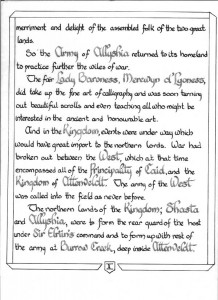 merriment and delight of the assembled folk of the two great
lands.
So the Army of Allyshia returned to its homeland
to practice further the wiles of war.
The fair Lady Baroness, Merewyn d'Lyoness,
did take up the fine art of calligraphy and was soon turning
out beautiful scrolls and even teaching all who might be
interested in the ancient and honourable art.
And in the Kingdom, events were under way which
would have great import to the northern lords. War had
broken out between the West, which at that time
encompassed all of the Principality of Caid, and the
Kingdom of Attenveldt. The army of the West
was called into the field as never before.
The northern lands of the Kingdom; Shasta
and Allyshia, were to form the rear guard of the host
under Sir Elfrin's command and to form up with rest of
the army at Burrow Creek, deep inside Attenveldt.